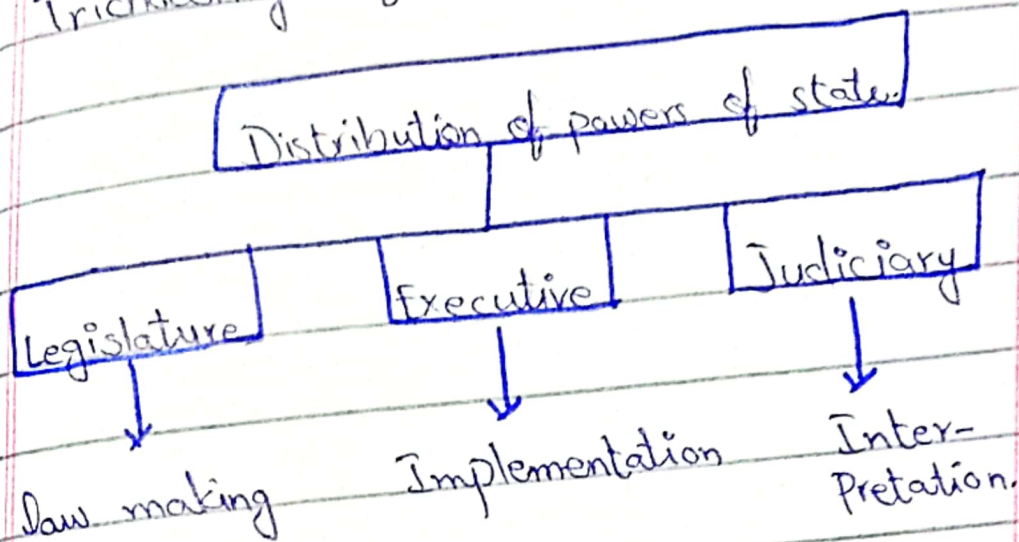 Distribution of powers of state.
Legislature
Executive
Judiciary
Law making
Implementation
Inter-
Pretation.